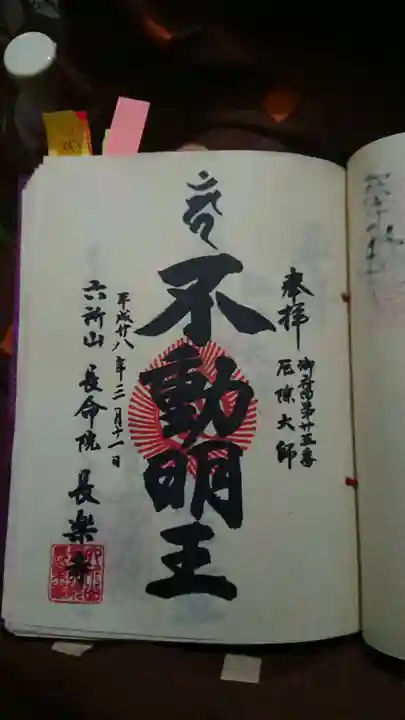 奉拝
御府内第廿五番
厄除大師
不動明王
平成廿八年三月十一日
六所山 長命院 長楽寺